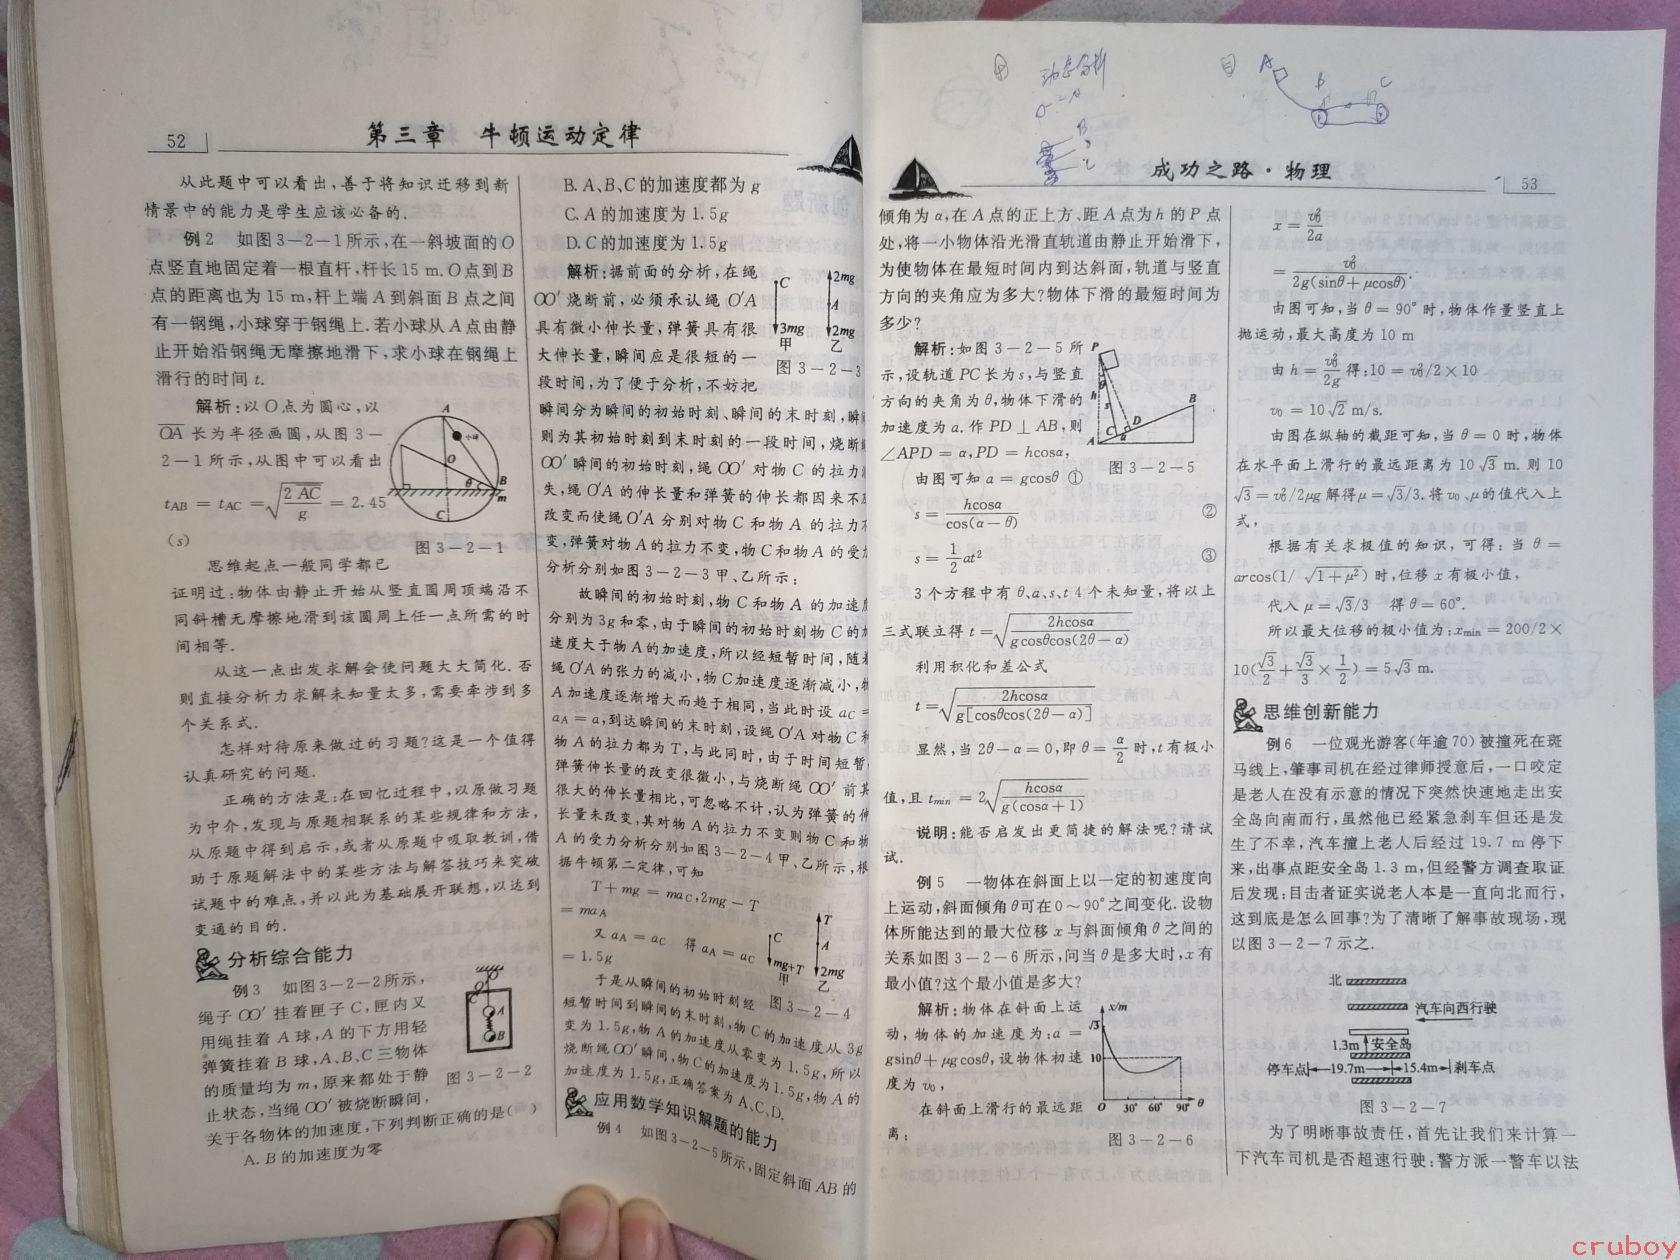 52
第三章　牛顿运动定律
从此题中可以看出,善于将知识迁移到新
情景中的能力是学生应该必备的.
例2　如图3-2-1所示,在一斜坡面的O
点竖直地固定着一根直杆,杆长15 m.O点到B
点的距离也为15 m,杆上端A到斜面B点之间
有一钢绳,小球穿于钢绳上.若小球从A点由静
止开始沿钢绳无摩擦地滑下,求小球在钢绳上
滑行的时间t.
解析:以O点为圆心,以
OA长为半径画圆,从图3-
2-1所示,从图中可以看出
tAB = tAC = √(2AC/g) = 2.45
(s)
A
小球
O
θ
B
m
C
图3-2-1
思维起点一般同学都已
证明过:物体由静止开始从竖直圆周顶端沿不
同斜槽无摩擦地滑到该圆周上任一点所需的时
间相等.
从这一点出发求解会使问题大大简化.否
则直接分析力求解未知量太多,需要牵涉到多
个关系式.
怎样对待原来做过的习题?这是一个值得
认真研究的问题.
正确的方法是:在回忆过程中,以原做习题
为中介,发现与原题相联系的某些规律和方法,
从原题中得到启示,或者从原题中吸取教训,借
助于原题解法中的某些方法与解答技巧来突破
试题中的难点,并以此为基础展开联想,以达到
变通的目的.
分析综合能力
例3　如图3-2-2所示,
绳子OO′挂着匣子C,匣内又
用绳挂着A球,A的下方用轻
弹簧挂着B球,A、B、C三物体
的质量均为m,原来都处于静
止状态,当绳OO′被烧断瞬间,
关于各物体的加速度,下列判断正确的是(　)
A
B
图3-2-2
A.B的加速度为零
B.A、B、C的加速度都为g
C.A的加速度为1.5g
D.C的加速度为1.5g
解析:据前面的分析,在绳
OO′烧断前,必须承认绳O′A
具有微小伸长量,弹簧具有很
大伸长量,瞬间应是很短的一
段时间,为了便于分析,不妨把
C
3mg
甲
2mg
A
2mg
乙
图3-2-3
瞬间分为瞬间的初始时刻、瞬间的末时刻,瞬
则为其初始时刻到末时刻的一段时间,烧断
OO′瞬间的初始时刻,绳OO′对物C的拉力
失,绳O′A的伸长量和弹簧的伸长都因来不
改变而使绳O′A分别对物C和物A的拉力不
变,弹簧对物A的拉力不变,物C和物A的受
分析分别如图3-2-3甲、乙所示:
故瞬间的初始时刻,物C和物A的加速
分别为3g和零,由于瞬间的初始时刻物C的加
速度大于物A的加速度,所以经短暂时间,随着
绳O′A的张力的减小,物C加速度逐渐减小,物
A加速度逐渐增大而趋于相同,当此时设aC =
aA = a,到达瞬间的末时刻,设绳O′A对物C和
物A的拉力都为T,与此同时,由于时间短暂
弹簧伸长量的改变很微小,与烧断绳OO′前其
很大的伸长量相比,可忽略不计,认为弹簧的伸
长量未改变,其对物A的拉力不变则物C和物
A的受力分析分别如图3-2-4甲、乙所示,根
据牛顿第二定律,可知
T + mg = maC,2mg - T
= maA
又aA = aC　得aA = aC
= 1.5g
C
mg+T
甲
T
A
2mg
乙
图3-2-4
于是从瞬间的初始时刻经
短暂时间到瞬间的末时刻,物C的加速度从3g
变为1.5g,物A的加速度从零变为1.5g,所以
烧断绳OO′瞬间,物C的加速度为1.5g,物A的
加速度为1.5g,正确答案为A、C、D.
应用数学知识解题的能力
例4　如图3-2-5所示,固定斜面AB的
动态分析
A
B
C
A
B
C
成功之路·物理
53
倾角为α,在A点的正上方、距A点为h的P点
处,将一小物体沿光滑直轨道由静止开始滑下,
为使物体在最短时间内到达斜面,轨道与竖直
方向的夹角应为多大?物体下滑的最短时间为
多少?
解析:如图3-2-5所
示,设轨道PC长为s,与竖直
方向的夹角为θ,物体下滑的
加速度为a.作PD⊥AB,则
∠APD = α,PD = hcosα,
P
θ
h
s
B
C
D
α
A
图3-2-5
由图可知a = gcosθ ①
s = hcosα/cos(α-θ)　②
s = 1/2 at²　③
3个方程中有θ、a、s、t 4个未知量,将以上
三式联立得t = √(2hcosα/gcosθcos(2θ-α))
利用积化和差公式
t = √(2hcosα/g[cosθcos(2θ-α)])
显然,当2θ-α = 0,即θ = α/2时,t有极小
值,且tmin = 2√(hcosα/g(cosα+1))
说明:能否启发出更简捷的解法呢?请试
试.
例5　一物体在斜面上以一定的初速度向
上运动,斜面倾角θ可在0~90°之间变化.设物
体所能达到的最大位移x与斜面倾角θ之间的
关系如图3-2-6所示,问当θ是多大时,x有
最小值?这个最小值是多大?
解析:物体在斜面上运
动,物体的加速度为:a =
gsinθ+μgcosθ,设物体初速
度为v₀,
在斜面上滑行的最远距
离:
x/m
√3
10
O
30° 60° 90° θ
图3-2-6
x = v₀²/2a
= v₀²/2g(sinθ+μcosθ).
由图可知,当θ = 90°时,物体作竖直上
抛运动,最大高度为10 m
由h = v₀²/2g得:10 = v₀²/2×10
v₀ = 10√2 m/s.
由图在纵轴的截距可知,当θ = 0时,物体
在水平面上滑行的最远距离为10√3 m.则10
√3 = v₀²/2μg解得μ = √3/3.将v₀、μ的值代入上
式,
根据有关求极值的知识,可得:当θ =
arcos(1/√1+μ²)时,位移x有极小值,
代入μ = √3/3　得θ = 60°.
所以最大位移的极小值为:xmin = 200/2×
10(√3/2+√3/3×1/2) = 5√3 m.
思维创新能力
例6　一位观光游客(年逾70)被撞死在斑
马线上,肇事司机在经过律师授意后,一口咬定
是老人在没有示意的情况下突然快速地走出安
全岛向南而行,虽然他已经紧急刹车但还是发
生了不幸,汽车撞上老人后经过19.7 m停下
来,出事点距安全岛1.3 m,但经警方调查取证
后发现:目击者证实说老人本是一直向北而行,
这到底是怎么回事?为了清晰了解事故现场,现
以图3-2-7示之.
北
汽车向西行驶
1.3m 安全岛
停车点 19.7m 15.4m 刹车点
图3-2-7
为了明晰事故责任,首先让我们来计算一
下汽车司机是否超速行驶:警方派一警车以法
cruboy